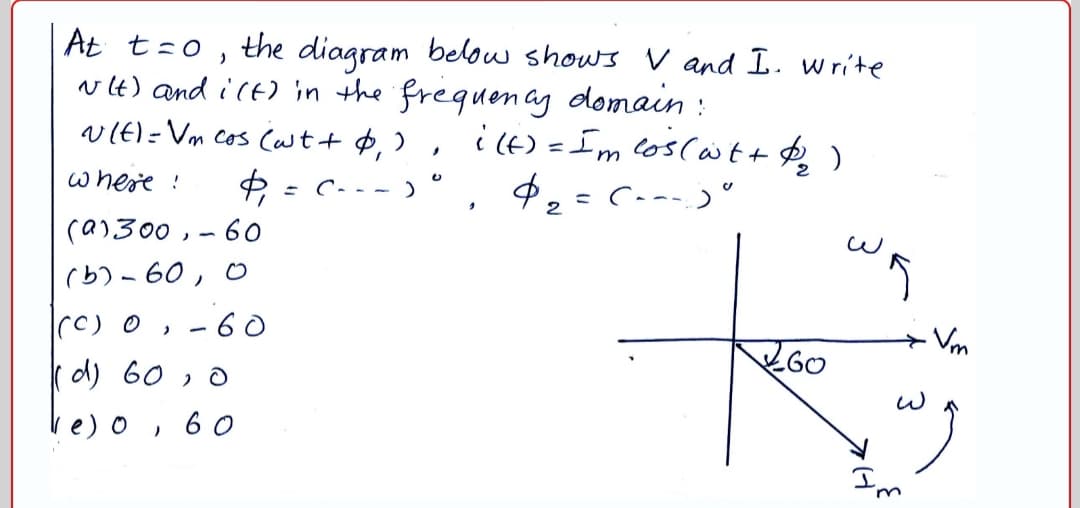 At t=0, the diagram below shows V and I. Write
v(t) and i(t) in the frequency domain:
v(t)=Vm cos (ωt+ ϕ₁), i(t) = Im cos(ωt+ ϕ₂)
where: ϕ₁ = (----)°, ϕ₂ = (----)°
(a) 300, -60
(b) -60, 0
(c) 0, -60
(d) 60, 0
(e) 0, 60
ω
Vm
-60
ω
Im